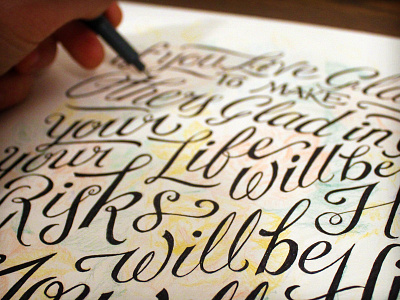 if you Love Glad
TO MAKE
Others Glad in
your Life will be
your
Risks H
will be Hi
You